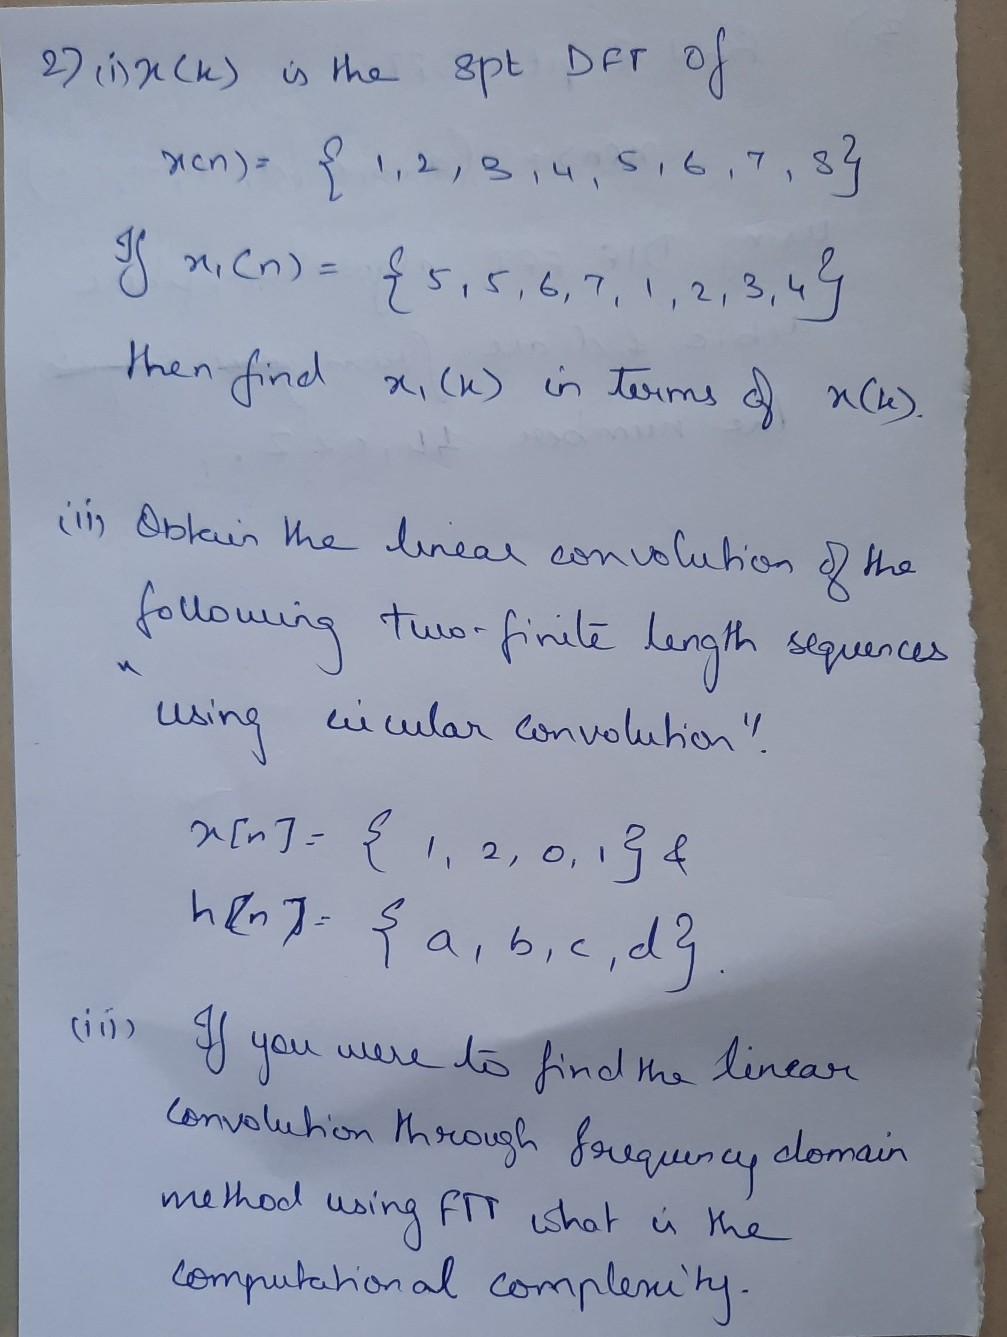 2) (i) x(k) is the 8pt DFT of
x(n) = { 1, 2, 3, 4, 5, 6, 7, 8}
If x₁(n) = { 5, 5, 6, 7, 1, 2, 3, 4}
then find x₁(k) in terms of x(k).
(ii) Obtain the linear convolution of the
following two-finite length sequences
"using circular convolution".
x[n] = { 1, 2, 0, 1} &
h[n] = { a, b, c, d}.
(iii) If you were to find the linear
convolution through frequency domain
method using FFT what is the
computational complexity.